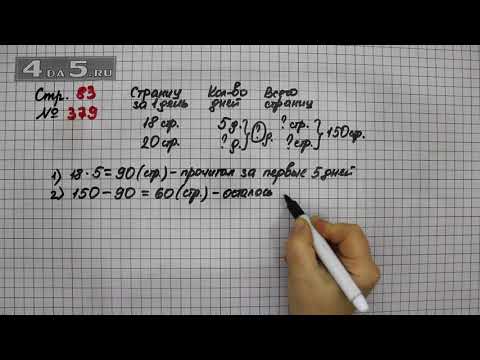 4DA5.RU
Стр. 83
№ 379
Страниц за 1 день Кол-во дней Всего страниц
18 стр. 5 д. ? стр.
20 стр. ? д. ? д. ? стр. 150 стр.
1) 18 · 5 = 90 (стр.) - прочитал за первые 5 дней
2) 150 - 90 = 60 (стр.) - осталось